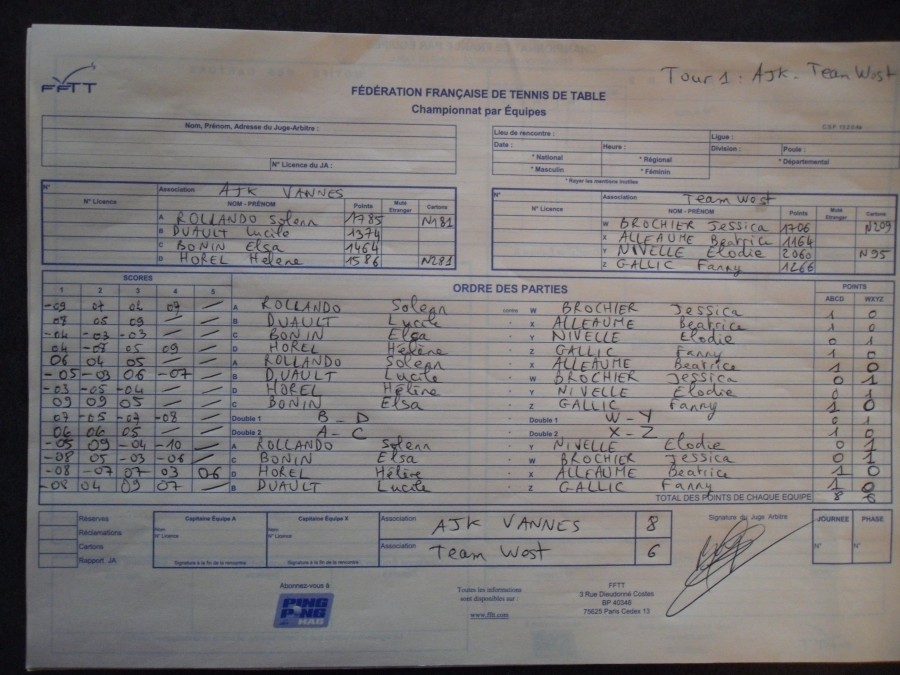 Tour 1 - AJK - Team West
FFTT
FÉDÉRATION FRANÇAISE DE TENNIS DE TABLE
Championnat par Équipes
Nom, Prénom, Adresse du Juge-Arbitre :
N° Licence du JA :
Lieu de rencontre : Ligue :
Date : Heure : Division : Poule :
* National * Régional * Départemental
* Masculin * Féminin
* Rayer les mentions inutiles
N° Association AJK VANNES
N° Licence NOM - PRÉNOM Points Muté Etranger Cartons
A ROLLANDO Solenn 1785 N181
B DUAULT Lucile 1374
C BONIN Elsa 1464
D HOREL Hélène 1586 N281
N° Association Team West
N° Licence NOM - PRÉNOM Points Muté Etranger Cartons
W BROCHIER Jessica 1706 N209
X ALLEAUME Beatrice 1164
Y NIVELLE Elodie 2060 N95
Z GALLIC Fanny 1266
SCORES ORDRE DES PARTIES POINTS
1 2 3 4 5 ABCD WXYZ
-09 07 02 07 A ROLLANDO Solenn contre W BROCHIER Jessica 1 0
08 05 09 B DUAULT Lucile X ALLEAUME Béatrice 1 0
-04 -03 -03 C BONIN Elsa Y NIVELLE Elodie 0 1
04 -08 05 09 D HOREL Hélène Z GALLIC Fanny 1 0
06 04 05 A ROLLANDO Solenn X ALLEAUME Beatrice 1 0
-05 -03 06 -07 B DUAULT Lucile W BROCHIER Jessica 0 1
-03 -05 -04 D HOREL Hélène Y NIVELLE Elodie 0 1
09 09 05 C BONIN Elsa Z GALLIC Fanny 1 0
07 -05 -07 -08 Double 1 B - D Double 1 W - Y 0 1
06 06 05 Double 2 A - C Double 2 X - Z 1 0
-05 09 -04 -10 A ROLLANDO Solenn Y NIVELLE Elodie 0 1
-08 05 -03 -06 C BONIN Elsa W BROCHIER Jessica 0 1
-08 -07 07 03 06 D HOREL Hélène X ALLEAUME Béatrice 1 0
-08 04 09 07 B DUAULT Lucile Z GALLIC Fanny 1 0
TOTAL DES POINTS DE CHAQUE EQUIPE 8 6
Réserves
Réclamations
Cartons
Rapport JA
Capitaine Équipe A
Nom
N° Licence
Signature à la fin de la rencontre
Capitaine Équipe X
Nom
N° Licence
Signature à la fin de la rencontre
Association AJK VANNES 8
Association Team West 6
Signature du Juge Arbitre
JOURNEE PHASE
N° N°
Abonnez-vous à
PING PONG MAG
Toutes les informations
sont disponibles sur :
www.fftt.com
FFTT
3 Rue Dieudonné Costes
BP 40348
75625 Paris Cedex 13